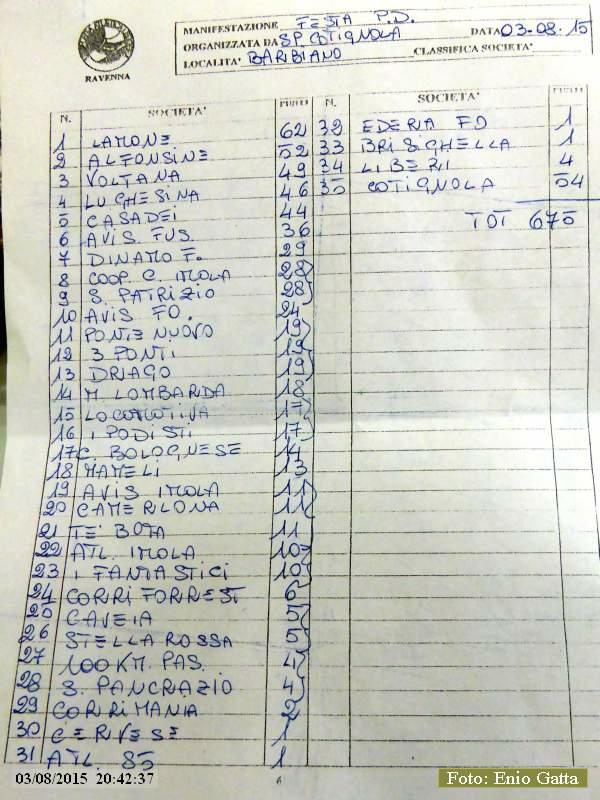 MANIFESTAZIONE FESTA P.D.
ORGANIZZATA DA S.P. COTIGNOLA DATA 03-08-15
LOCALITA' BARBIANO CLASSIFICA SOCIETA'
RAVENNA
N. SOCIETA' PUNTI N. SOCIETA' PUNTI
1 LAMONE 62
2 ALFONSINE 52
3 VOLTANA 49
4 LUGHESINA 46
5 CASADEI 44
6 AVIS FUS. 36
7 DINAMO F. 29
8 COOP. C. IMOLA 28
9 S. PATRIZIO 28
10 AVIS FO. 24
11 PONTE NUOVO 19
12 3 PONTI 19
13 DRIAGO 19
14 M. LOMBARDA 18
15 LOCOMOTIVA 17
16 I PODISTI 17
17 C. BOLOGNESE 14
18 MAMELI 13
19 AVIS IMOLA 11
20 CAMERLONA 11
21 TE' BOTA 11
22 ATL. IMOLA 10
23 I FANTASTICI 10
24 CORRI FORREST 6
25 CAVEIA 5
26 STELLA ROSSA 5
27 100 KM. PAS. 4
28 S. PANCRAZIO 4
29 CORRIMANIA 2
30 CERVESE 1
31 ATL. 85 1
32 EDERA FO 1
33 BRISIGHELLA 1
34 LIBERI 4
35 COTIGNOLA 54
TOT 675
03/08/2015 20:42:37
Foto: Enio Gatta